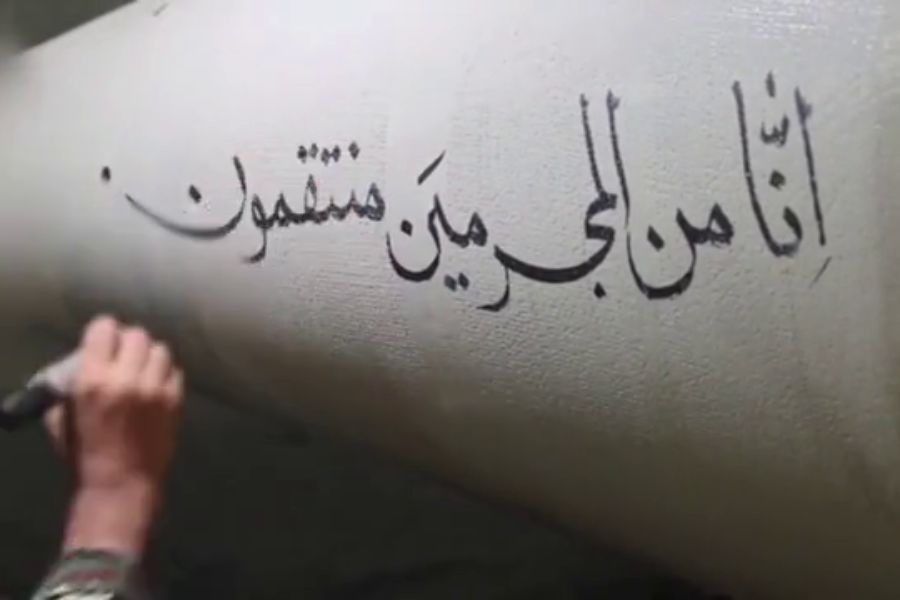 إنّا من المجرمينَ منتقمون